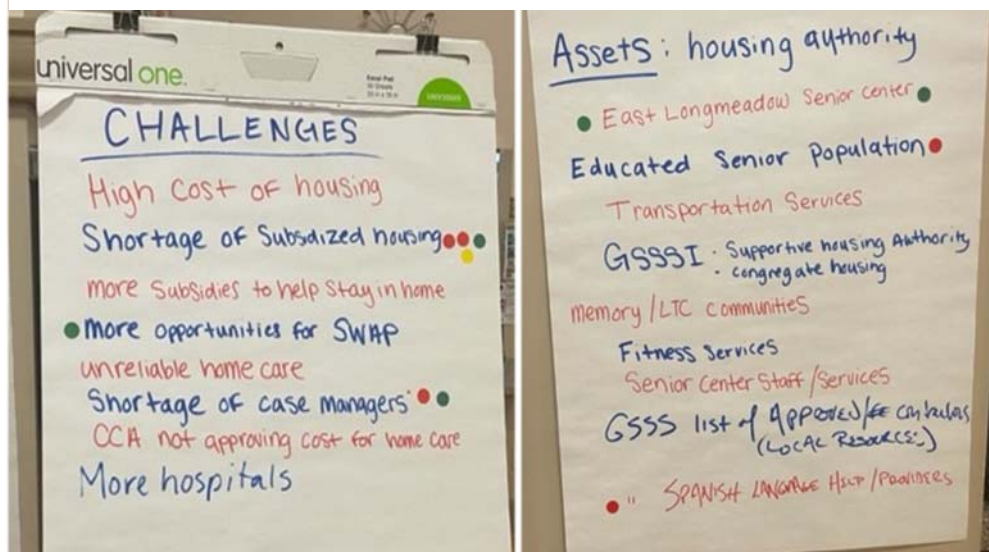 universal one.
Easel Pad
CHALLENGES
High Cost of housing
Shortage of Subsdized housing
more Subsidies to help Stay in home
more opportunities for SWAP
unreliable home care
Shortage of case managers
CCA not approving cost for home care
More hospitals
Assets: housing authority
East Longmeadow Senior Center
Educated Senior Population
Transportation Services
GSSSI : Supportive housing Authority
· congregate housing
memory/LTC communities
Fitness Services
Senior Center Staff/Services
GSSS list of APPROVED
(LOCAL RESOURCES)
" SPANISH LANGUAGE HELP/PROVIDERS